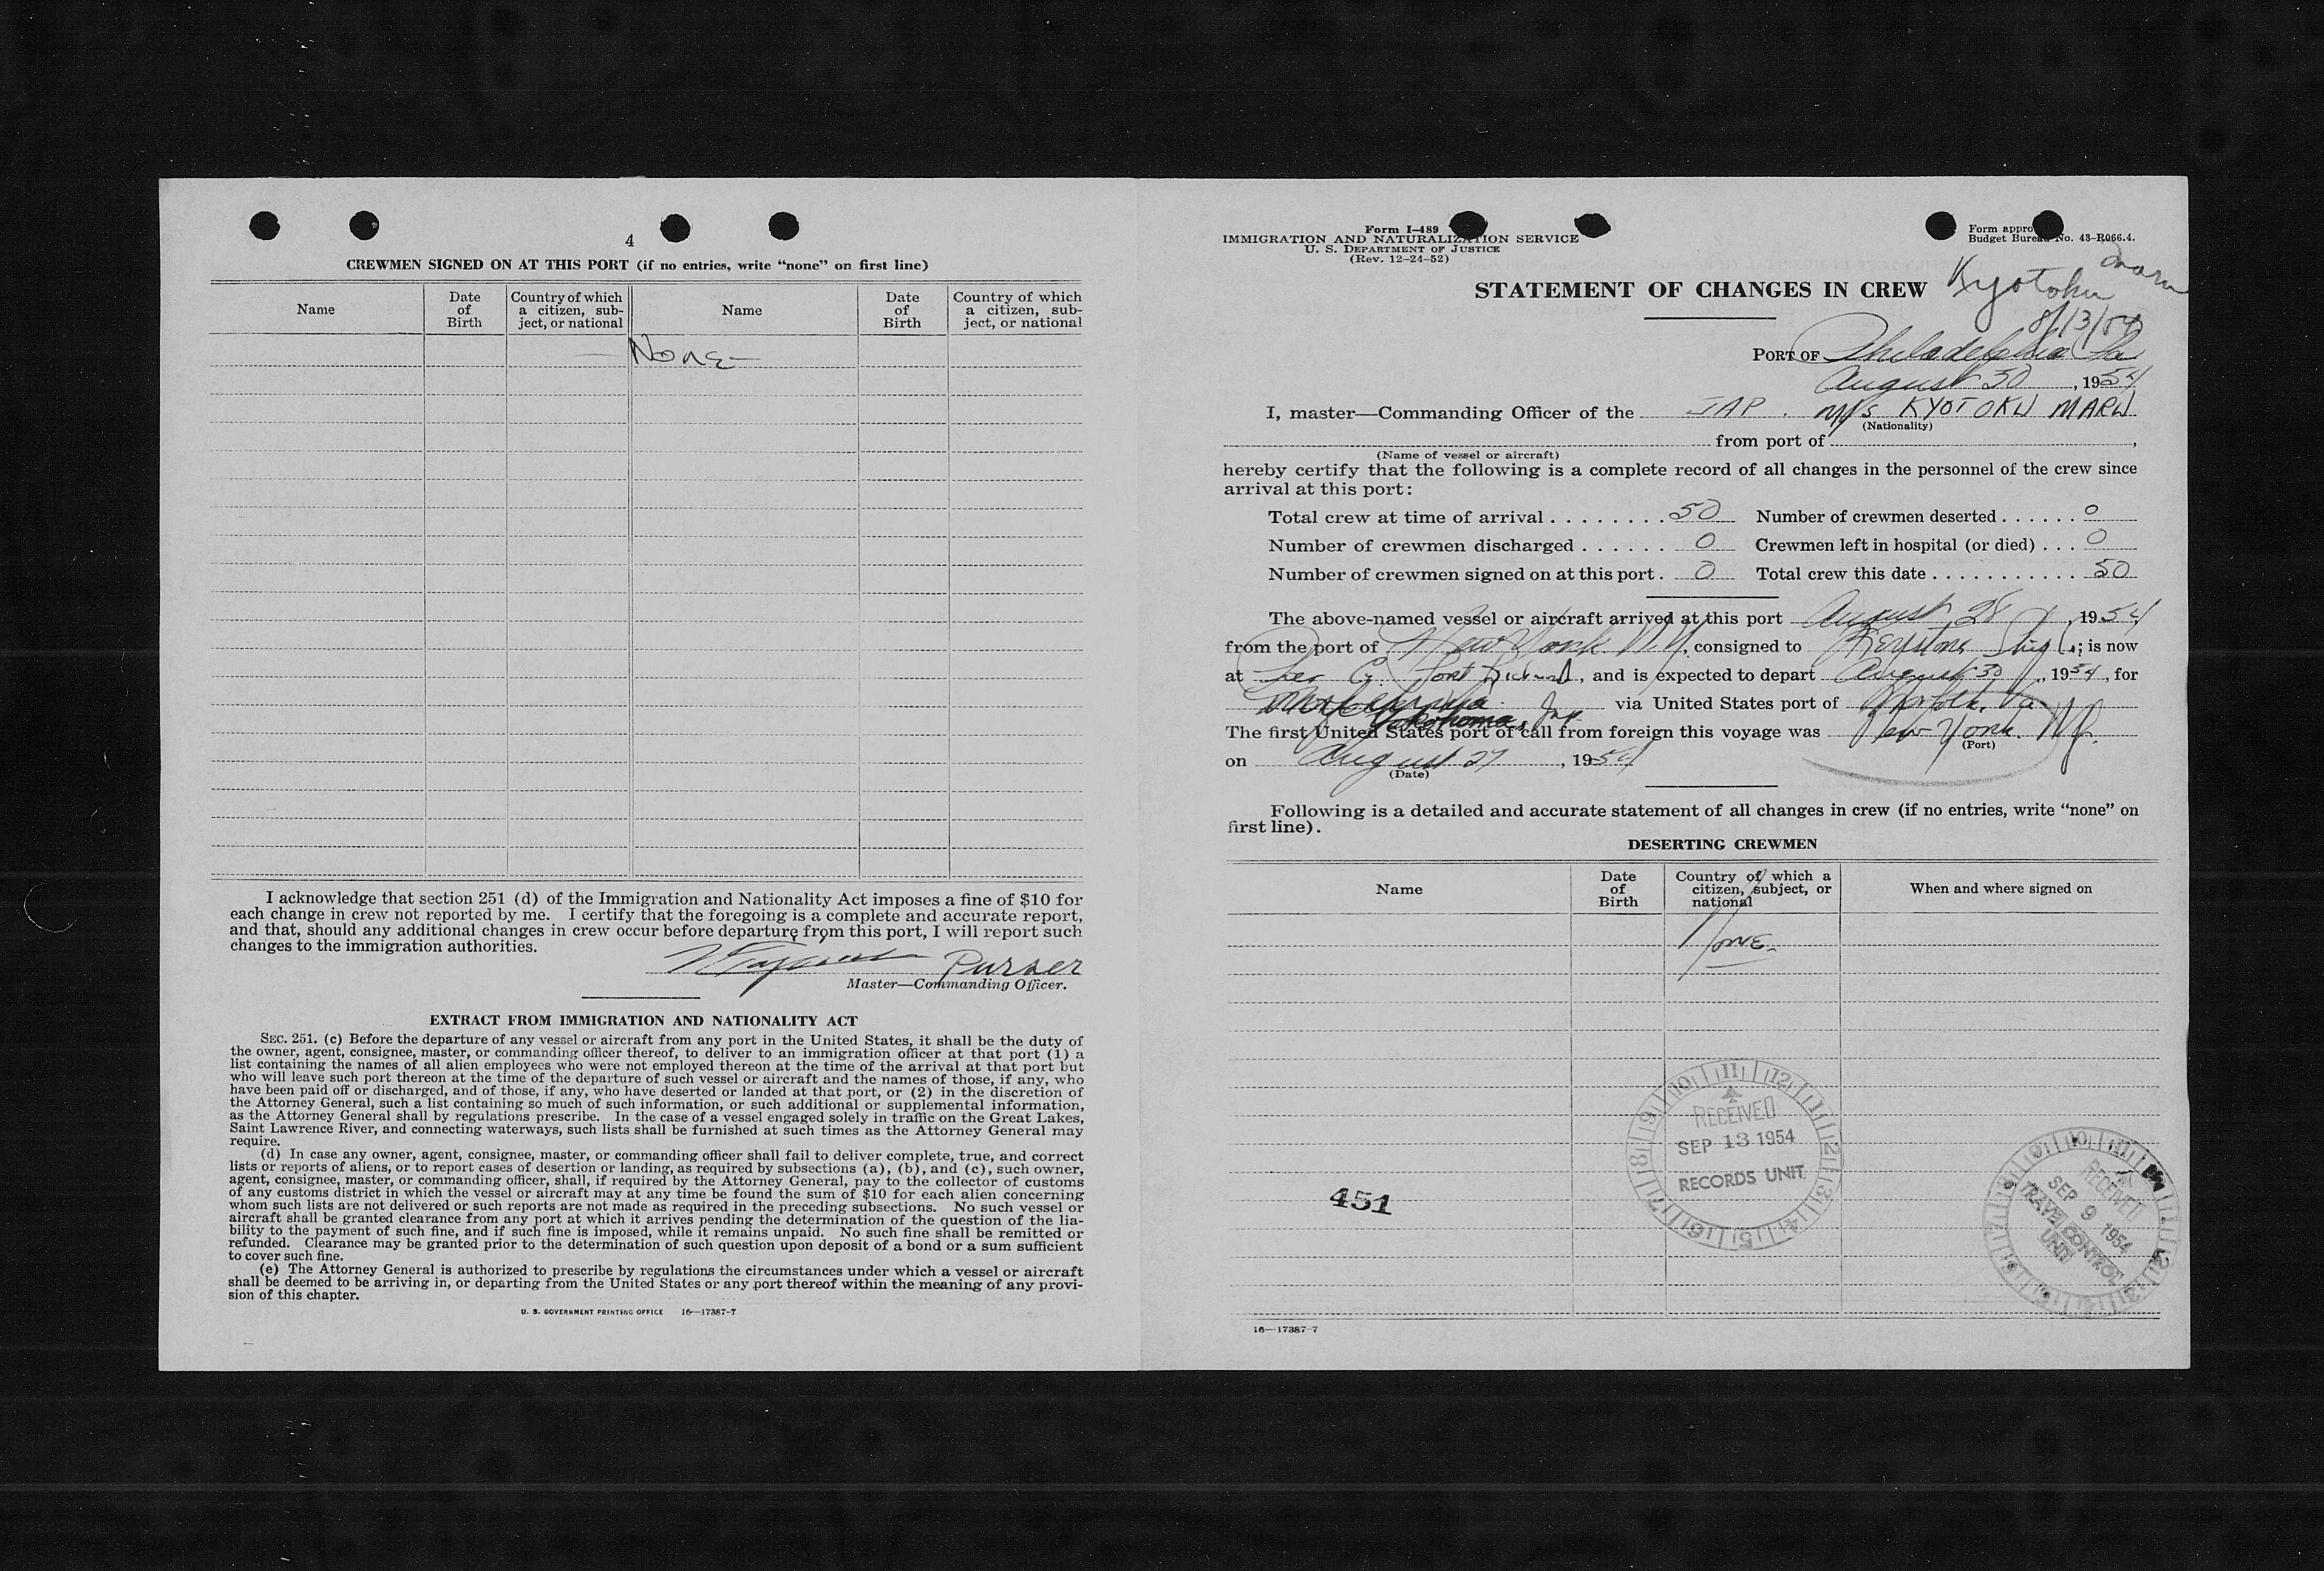 4
CREWMEN SIGNED ON AT THIS PORT (if no entries, write “none” on first line)
Name
Date of Birth
Country of which a citizen, subject, or national
Name
Date of Birth
Country of which a citizen, subject, or national
— None —
I acknowledge that section 251 (d) of the Immigration and Nationality Act imposes a fine of $10 for
each change in crew not reported by me. I certify that the foregoing is a complete and accurate report,
and that, should any additional changes in crew occur before departure from this port, I will report such
changes to the immigration authorities.
Purser
Master—Commanding Officer.
EXTRACT FROM IMMIGRATION AND NATIONALITY ACT
SEC. 251. (c) Before the departure of any vessel or aircraft from any port in the United States, it shall be the duty of
the owner, agent, consignee, master, or commanding officer thereof, to deliver to an immigration officer at that port (1) a
list containing the names of all alien employees who were not employed thereon at the time of the arrival at that port but
who will leave such port thereon at the time of the departure of such vessel or aircraft and the names of those, if any, who
have been paid off or discharged, and of those, if any, who have deserted or landed at that port, or (2) in the discretion of
the Attorney General, such a list containing so much of such information, or such additional or supplemental information,
as the Attorney General shall by regulations prescribe. In the case of a vessel engaged solely in traffic on the Great Lakes,
Saint Lawrence River, and connecting waterways, such lists shall be furnished at such times as the Attorney General may
require.
(d) In case any owner, agent, consignee, master, or commanding officer shall fail to deliver complete, true, and correct
lists or reports of aliens, or to report cases of desertion or landing, as required by subsections (a), (b), and (c), such owner,
agent, consignee, master, or commanding officer, shall, if required by the Attorney General, pay to the collector of customs
of any customs district in which the vessel or aircraft may at any time be found the sum of $10 for each alien concerning
whom such lists are not delivered or such reports are not made as required in the preceding subsections. No such vessel or
aircraft shall be granted clearance from any port at which it arrives pending the determination of the question of the lia-
bility to the payment of such fine, and if such fine is imposed, while it remains unpaid. No such fine shall be remitted or
refunded. Clearance may be granted prior to the determination of such question upon deposit of a bond or a sum sufficient
to cover such fine.
(e) The Attorney General is authorized to prescribe by regulations the circumstances under which a vessel or aircraft
shall be deemed to be arriving in, or departing from the United States or any port thereof within the meaning of any provi-
sion of this chapter.
U. S. GOVERNMENT PRINTING OFFICE 16—17387-7
Form I-489
IMMIGRATION AND NATURALIZATION SERVICE
U. S. DEPARTMENT OF JUSTICE
(Rev. 12-24-52)
Form appro
Budget Bureau No. 43-R066.4.
STATEMENT OF CHANGES IN CREW
Kyotoku Maru
8/13/54
PORT OF Philadelphia Pa
August 30, 1954
I, master—Commanding Officer of the JAP. M/S KYOTOKU MARU
(Nationality)
from port of ,
(Name of vessel or aircraft)
hereby certify that the following is a complete record of all changes in the personnel of the crew since
arrival at this port:
Total crew at time of arrival . . . . . . . . 50 Number of crewmen deserted . . . . . . 0
Number of crewmen discharged . . . . . . 0 Crewmen left in hospital (or died) . . . 0
Number of crewmen signed on at this port . 0 Total crew this date . . . . . . . . . . . 50
The above-named vessel or aircraft arrived at this port August 28, 1954
from the port of New York N.Y., consigned to Keystone ; is now
at Port Richmond, and is expected to depart August 30, 1954, for
via United States port of Norfolk, Va
Yokohoma, Jap
The first United States port of call from foreign this voyage was New York. N.Y.
(Port)
on August 27, 1954
(Date)
Following is a detailed and accurate statement of all changes in crew (if no entries, write “none” on
first line).
DESERTING CREWMEN
Name
Date of Birth
Country of which a citizen, subject, or national
When and where signed on
None
RECEIVED
SEP 13 1954
RECORDS UNIT
451
RECEIVED
SEP 9 1954
TRAVEL CONTROL
UNIT
16—17387-7